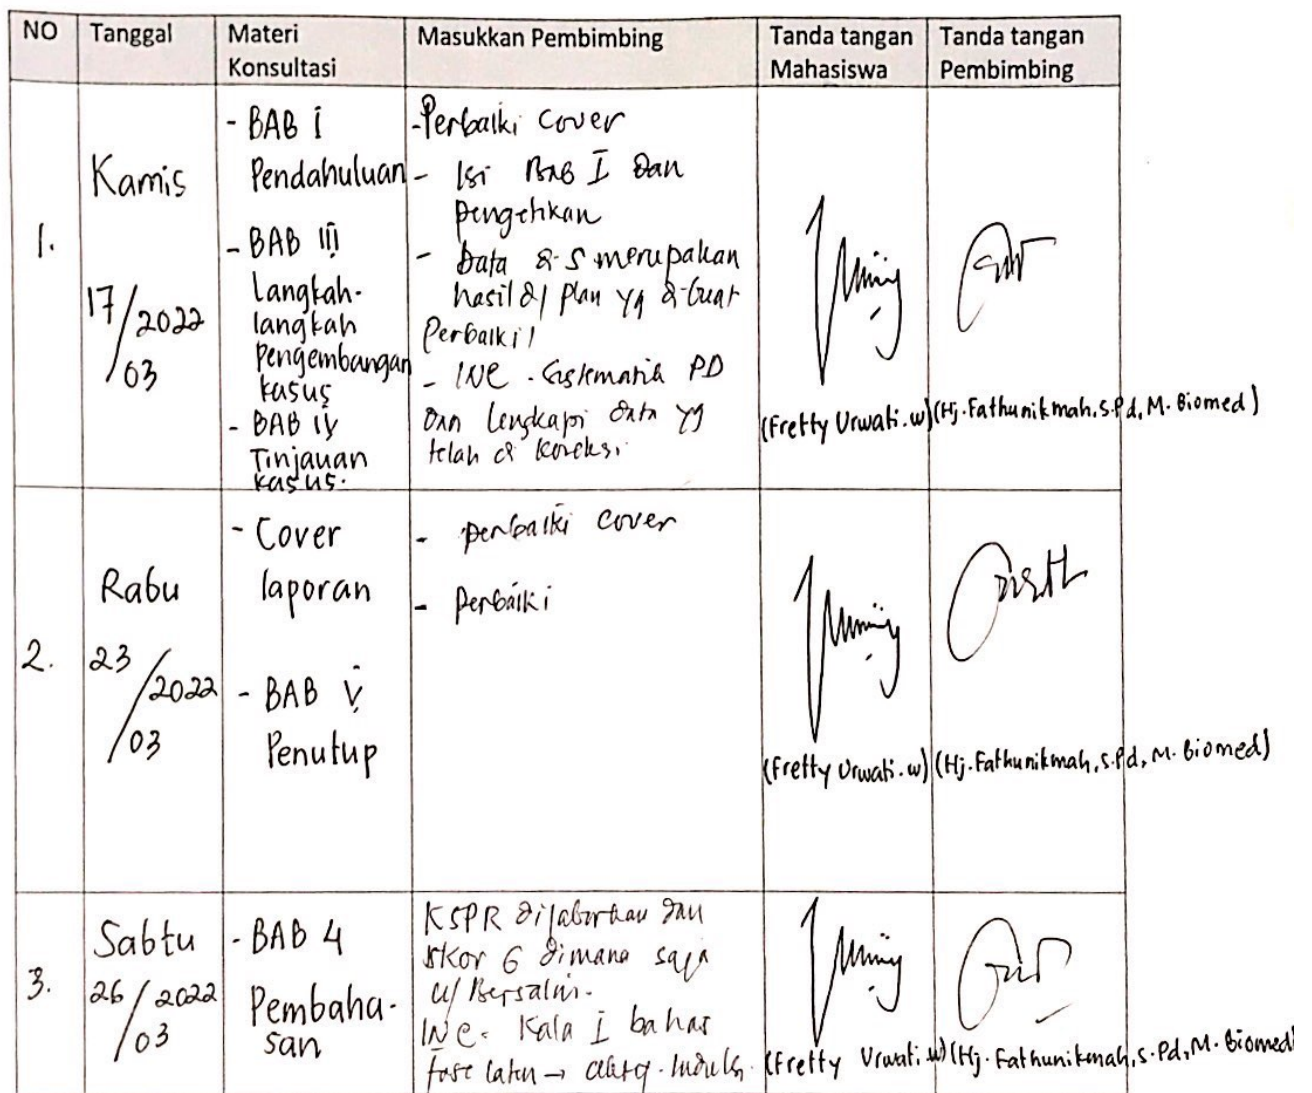 NO Tanggal Materi Konsultasi Masukkan Pembimbing Tanda tangan Mahasiswa Tanda tangan Pembimbing
1.
Kamis
17/03/2022
- BAB I
Pendahuluan
- BAB III
Langkah-
langkah
Pengembangan
kasus
- BAB IV
Tinjauan
kasus.
- Perbaiki cover
- Isi BAB I dan
pengetikan
- Data merupakan
hasil plan yg
Perbaiki!
- INC - PD
Dan Lengkapi data yg
telah di koreksi
(Fretty Urwati.w)
(Hj. Fathunikmah, S.Pd, M. Biomed)
2.
Rabu
23/03/2022
- Cover
laporan
- BAB V
Penutup
- perbaiki cover
- perbaiki
(Fretty Urwati.w)
(Hj. Fathunikmah, S.Pd, M. Biomed)
3.
Sabtu
26/03/2022
- BAB 4
Pembaha-
san
KSPR dijabarkan dan
skor 6 dimana saja
u/ Bersalin.
INC. Kala I bahas
fase laten →
(Fretty Urwati.w)
(Hj. Fathunikmah, S.Pd, M. Biomed)